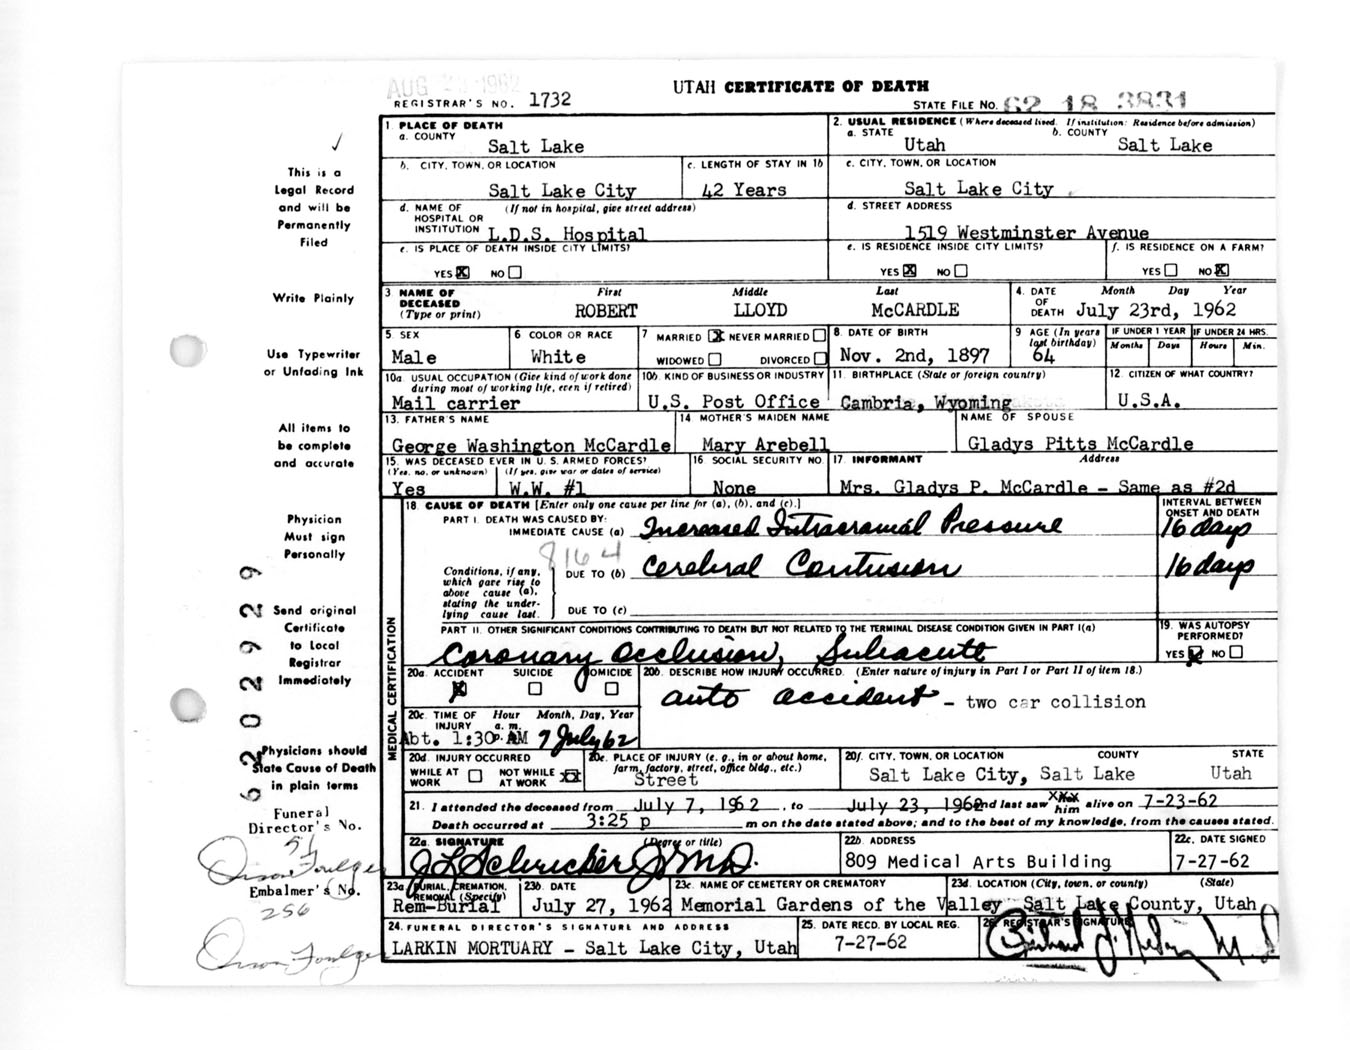 AUG 23 1962
UTAH CERTIFICATE OF DEATH
REGISTRAR'S NO. 1732
STATE FILE NO. 62 18 3831
This is a
Legal Record
and will be
Permanently
Filed
Write Plainly
Use Typewriter
or Unfading Ink
All items to
be complete
and accurate
Physician
Must sign
Personally
Send original
Certificate
to Local
Registrar
Immediately
Physicians should
State Cause of Death
in plain terms
Funeral
Director's No.
51
Orson Foulger
Embalmer's No.
256
Orson Foulger
62 02929
1. PLACE OF DEATH
a. COUNTY
Salt Lake
2. USUAL RESIDENCE (Where deceased lived. If institution: Residence before admission)
a. STATE
Utah
b. COUNTY
Salt Lake
b. CITY, TOWN, OR LOCATION
Salt Lake City
c. LENGTH OF STAY IN 1b
42 Years
c. CITY, TOWN, OR LOCATION
Salt Lake City
d. NAME OF HOSPITAL OR INSTITUTION (If not in hospital, give street address)
L.D.S. Hospital
d. STREET ADDRESS
1519 Westminster Avenue
e. IS PLACE OF DEATH INSIDE CITY LIMITS?
YES X NO
e. IS RESIDENCE INSIDE CITY LIMITS?
YES X NO
f. IS RESIDENCE ON A FARM?
YES NO X
3 NAME OF DECEASED (Type or print)
First Middle Last
ROBERT LLOYD McCARDLE
4. DATE OF DEATH Month Day Year
July 23rd, 1962
5. SEX
Male
6 COLOR OR RACE
White
7 MARRIED X NEVER MARRIED
WIDOWED DIVORCED
8. DATE OF BIRTH
Nov. 2nd, 1897
9 AGE (In years last birthday)
64
IF UNDER 1 YEAR Months Days
IF UNDER 24 HRS. Hours Min.
10a. USUAL OCCUPATION (Give kind of work done during most of working life, even if retired)
Mail carrier
10b. KIND OF BUSINESS OR INDUSTRY
U.S. Post Office
11. BIRTHPLACE (State or foreign country)
Cambria, Wyoming
12. CITIZEN OF WHAT COUNTRY?
U.S.A.
13. FATHER'S NAME
George Washington McCardle
14 MOTHER'S MAIDEN NAME
Mary Arebell
NAME OF SPOUSE
Gladys Pitts McCardle
15. WAS DECEASED EVER IN U.S. ARMED FORCES?
(Yes, no, or unknown) (If yes, give war or dates of service)
Yes W.W. #1
16 SOCIAL SECURITY NO.
None
17. INFORMANT Address
Mrs. Gladys P. McCardle - Same as #2d
MEDICAL CERTIFICATION
18. CAUSE OF DEATH [Enter only one cause per line for (a), (b), and (c).]
INTERVAL BETWEEN ONSET AND DEATH
PART I. DEATH WAS CAUSED BY:
IMMEDIATE CAUSE (a) Increased Intracranial Pressure 16 days
8164
Conditions, if any, which gave rise to above cause (a), stating the underlying cause last.
DUE TO (b) Cerebral Contusion 16 days
DUE TO (c)
PART II. OTHER SIGNIFICANT CONDITIONS CONTRIBUTING TO DEATH BUT NOT RELATED TO THE TERMINAL DISEASE CONDITION GIVEN IN PART I(a)
Coronary Occlusion, Subacute
19. WAS AUTOPSY PERFORMED?
YES X NO
20a. ACCIDENT X SUICIDE HOMICIDE
20b. DESCRIBE HOW INJURY OCCURRED. (Enter nature of injury in Part I or Part II of item 18.)
auto accident - two car collision
20c. TIME OF INJURY Hour Month, Day, Year
a. m.
p. m.
Abt. 1:30 AM 7 July 62
20d. INJURY OCCURRED
WHILE AT WORK NOT WHILE AT WORK X
20e. PLACE OF INJURY (e. g., in or about home, farm, factory, street, office bldg., etc.)
Street
20f. CITY, TOWN, OR LOCATION COUNTY STATE
Salt Lake City, Salt Lake Utah
21. I attended the deceased from July 7, 1962, to July 23, 1962 and last saw him alive on 7-23-62
Death occurred at 3:25 p m on the date stated above; and to the best of my knowledge, from the causes stated.
22a. SIGNATURE (Degree or title)
J L Schricker Jr MD.
22b. ADDRESS
809 Medical Arts Building
22c. DATE SIGNED
7-27-62
23a. BURIAL, CREMATION, REMOVAL (Specify)
Rem-Burial
23b. DATE
July 27, 1962
23c. NAME OF CEMETERY OR CREMATORY
Memorial Gardens of the Valley
23d. LOCATION (City, town, or county) (State)
Salt Lake County, Utah
24. FUNERAL DIRECTOR'S SIGNATURE AND ADDRESS
LARKIN MORTUARY - Salt Lake City, Utah
25. DATE RECD. BY LOCAL REG.
7-27-62
26. REGISTRAR'S SIGNATURE
M.D.